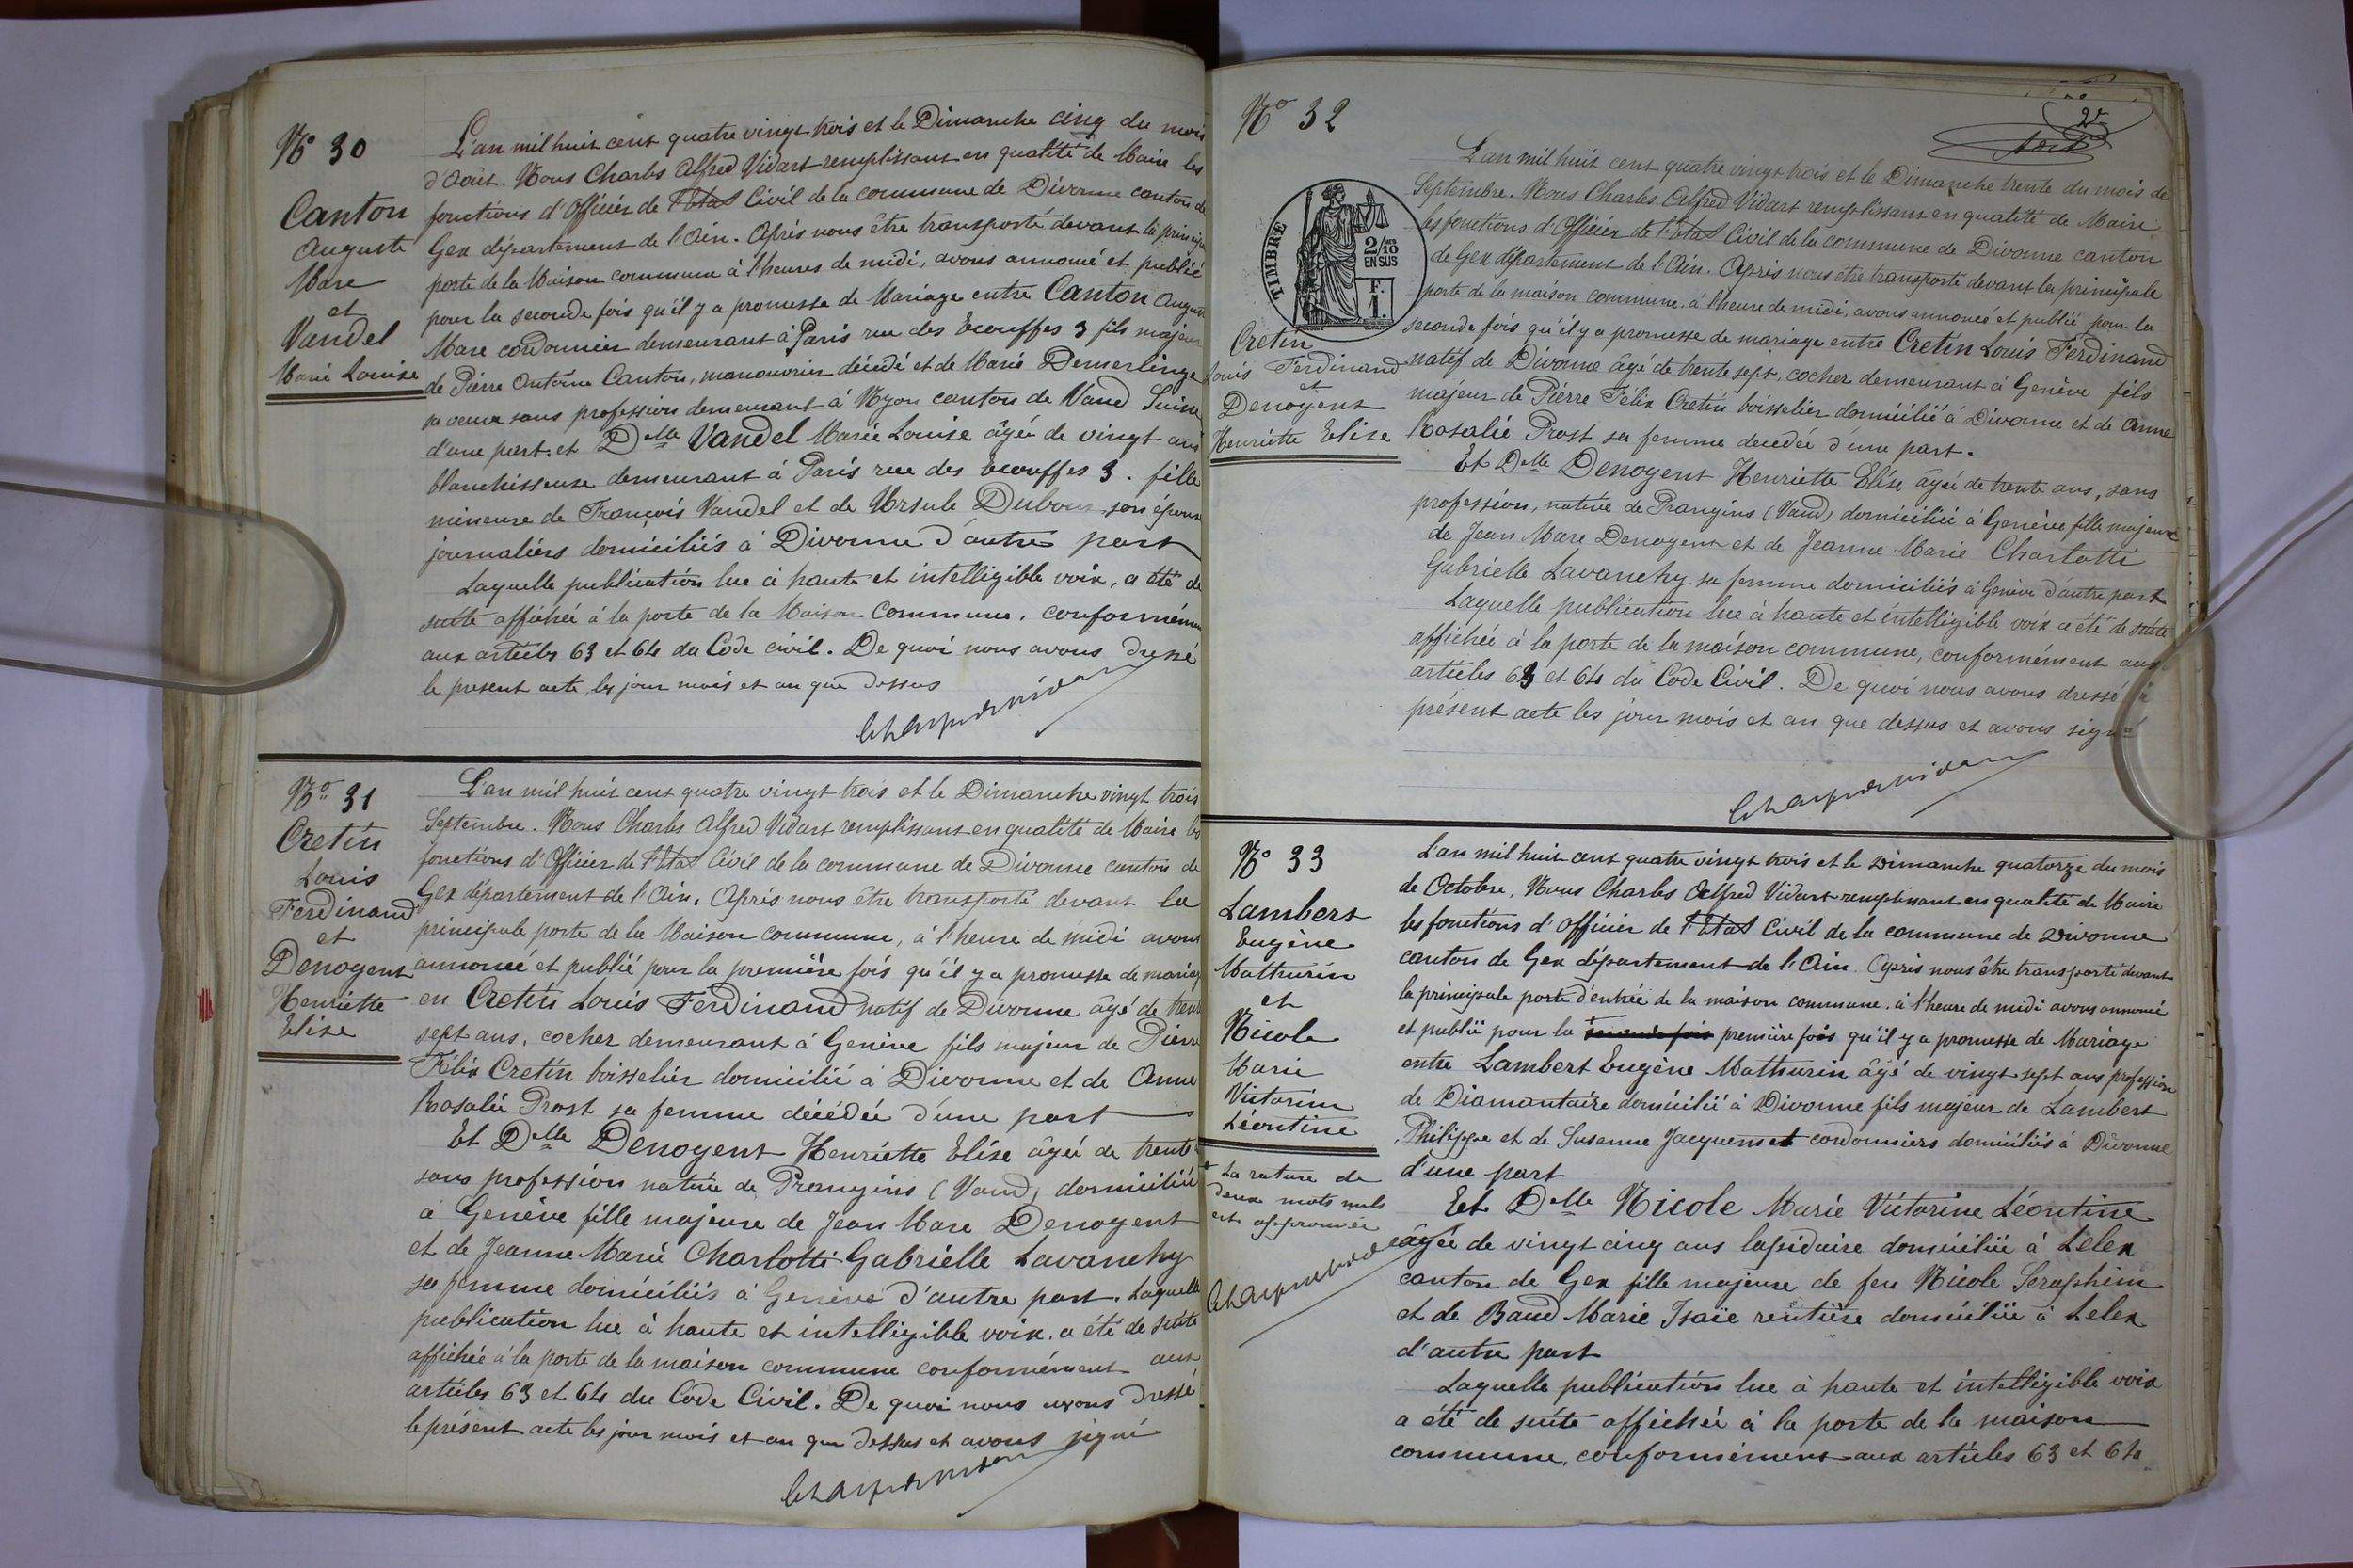 No 30
Canton
Auguste
Marc
et
Vandel
Marie Louise
L'an mil huit cent quatre vingt trois et le Dimanche cinq du mois
d'Août. Nous Charles Alfred Vidart remplissant en qualité de Maire les
fonctions d'Officier de l'Etat Civil de la commune de Divonne canton de
Gex département de l'Ain. Après nous être transporté devant la princip
porte de la Maison commune à l'heures de midi, avons annoncé et publié
pour la seconde fois qu'il y a promesse de Mariage entre Canton August
Marc cordonnier demeurant à Paris rue des Ecouffes 3 fils majeur
de Pierre Antoine Canton, manouvrier décédé et de Marie Demerlinge
sa veuve sans profession demeurant à Nyon canton de Vaud Suisse
d'une part. et Delle Vandel Marie Louise âgée de vingt ans
blanchisseuse demeurant à Paris rue des Ecouffes 3. fille
mineure de François Vandel et de Ursule Dubous son épouse
journaliers domiciliés à Divonne d'autre part
Laquelle publication lue à haute et intelligible voix, a été de
suite affichée à la porte de la Maison Commune, conformémen
aux articles 63 et 64 du Code civil. De quoi nous avons dressé
le present acte les jour mois et an que dessus
No 31
Cretin
Louis
Ferdinand
et
Denogent
Henriette
Elise
L'an mil huit cent quatre vingt trois et le Dimanche vingt trois
Septembre. Nous Charles Alfred Vidart remplissant en qualité de Maire les
fonctions d'Officier de l'Etat Civil de la commune de Divonne canton de
Gex département de l'Ain. Après nous être transporté devant la
principale porte de la Maison commune, à l'heure de midi avons
annoncé et publié pour la première fois qu'il y a promesse de mariag
en Cretin Louis Ferdinand natif de Divonne âgé de trente
sept ans, cocher demeurant à Genève fils majeur de Pierre
Félix Cretin boisselier domicilié à Divonne et de Anne
Rosalie Prost sa femme décédée d'une part
Et Delle Denogent Henriette Elise âgée de trente
sans profession native de Prangins (Vaud) domiciliée
à Genève fille majeure de Jean Marc Denogent
et de Jeanne Marie Charlotte Gabrielle Lavanchy
sa femme domiciliés à Genève d'autre part. Laquelle
publication lue à haute et intelligible voix. a été de suite
affichée à la porte de la maison commune conformément aux
articles 63 et 64 du Code Civil. De quoi nous avons dressé
le présent acte les jour mois et an que dessus et avons signé
No 32
TIMBRE
2/10
EN SUS
F.
1.
Cretin
Louis Ferdinand
et
Denogent
Henriette Elise
L'an mil huit cent quatre vingt trois et le Dimanche trente du mois de
Septembre. Nous Charles Alfred Vidart remplissant en qualité de Maire
les fonctions d'Officier de l'Etat Civil de la commune de Divonne canton
de Gex département de l'Ain. Après nous être transporté devant la principale
porte de la maison commune, à l'heure de midi, avons annoncé et publié pour la
seconde fois qu'il y a promesse de mariage entre Cretin Louis Ferdinand
natif de Divonne âgé de trente sept, cocher demeurant à Genève fils
majeur de Pierre Félix Cretin boisselier domicilié à Divonne et de Anne
Rosalie Prost sa femme decedée d'une part.
Et Delle Denogent Henriette Elise âgée de trente ans, sans
profession, native de Prangins (Vaud) domiciliée à Genève fille majeure
de Jean Marc Denogent et de Jeanne Marie Charlotte
Gabrielle Lavanchy sa femme domiciliés à Genève d'autre part
Laquelle publication lue à haute et intelligible voix a été de suite
affichée à la porte de la maison commune, conformément aux
articles 63 et 64 du Code Civil. De quoi nous avons dressé le
présent acte les jour mois et an que dessus et avons signé
No 33
Lambert
Eugène
Mathurin
et
Nicole
Marie
Victorine
Léontine
La rature de
deux mots nuls
est approuvée
L'an mil huit cent quatre vingt trois et le Dimanche quatorze du mois
de Octobre, Nous Charles Alfred Vidart remplissant en qualité de Maire
les fonctions d'Officier de l'Etat Civil de la commune de Divonne
canton de Gex département de l'Ain. Après nous être transporté devant
la principale porte d'entrée de la maison commune. à l'heure de midi avons annoncé
et publié pour la seconde fois première fois qu'il y a promesse de Mariage
entre Lambert Eugène Mathurin âgé de vingt sept ans profession
de Diamantaire domicilié à Divonne fils majeur de Lambert
Philippe et de Susanne Jacquemet cordonniers domiciliés à Divonne
d'une part
Et Delle Nicole Marie Victorine Léontine
âgée de vingt cinq ans lapidaire domiciliée à Lelex
canton de Gex fille majeure de feu Nicole Seraphim
et de Baud Marie Isaïe rentière domiciliée à Lelex
d'autre part
Laquelle publication lue à haute et intelligible voix
a été de suite affichée à la porte de la maison
commune, conformément aux articles 63 et 64